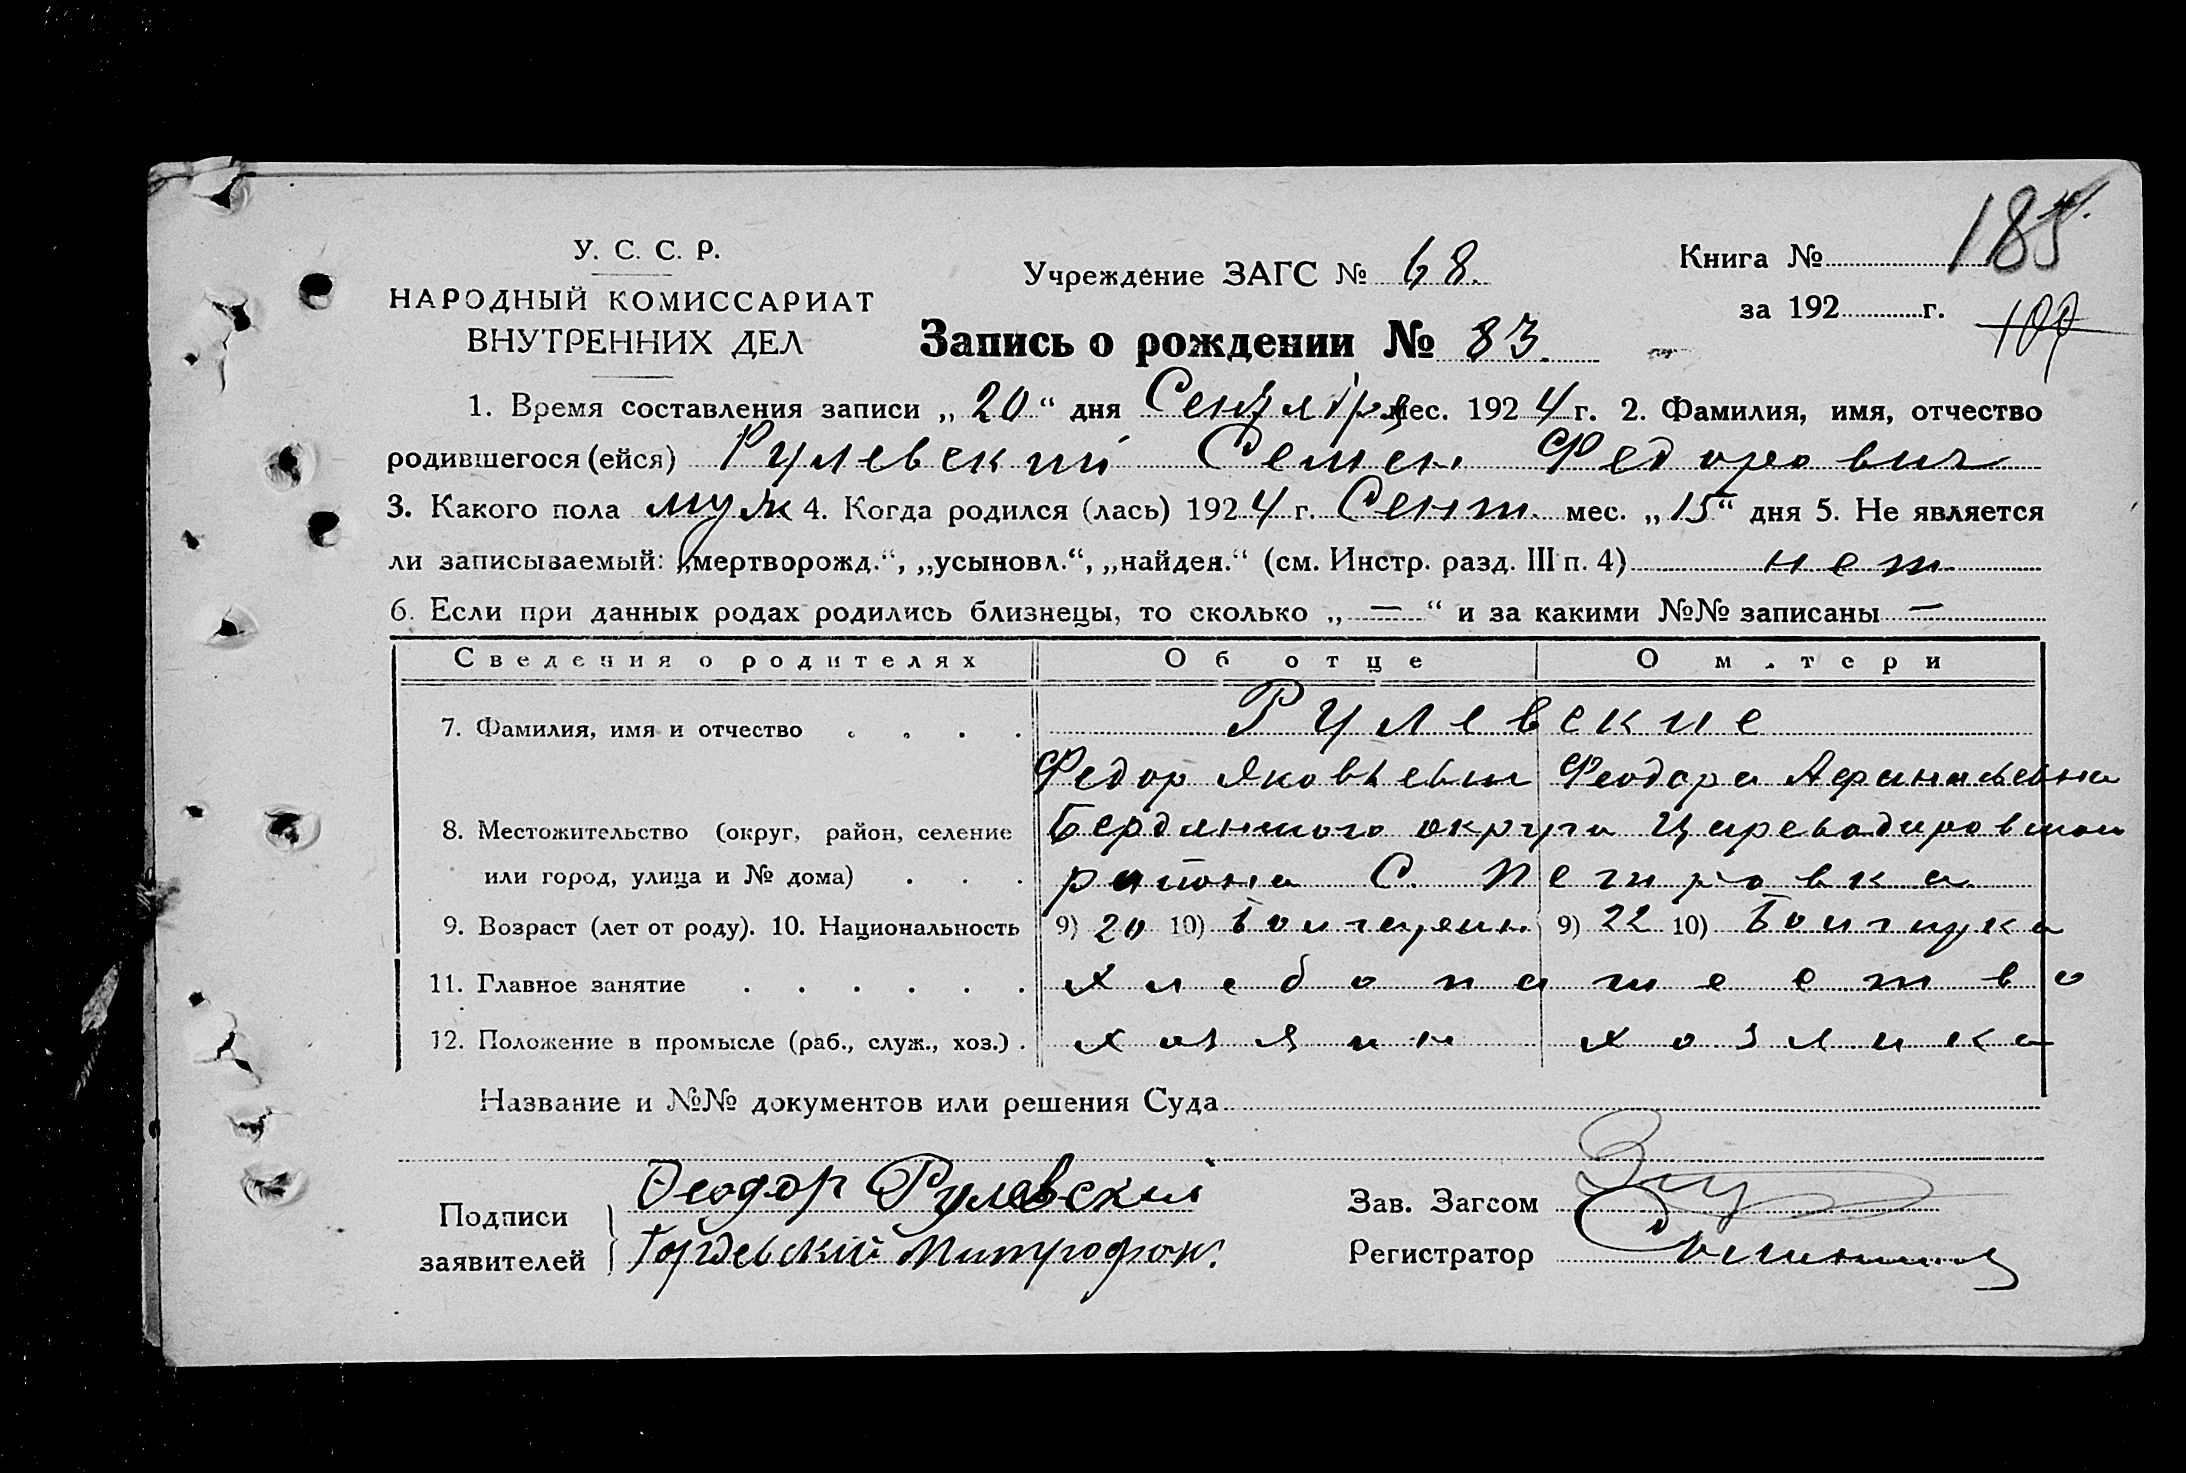 185
У. С. С. Р.
НАРОДНЫЙ КОМИССАРИАТ
ВНУТРЕННИХ ДЕЛ
Учреждение ЗАГС № 68.
Книга №
за 192 г.
Запись о рождении № 83.
1. Время составления записи „ 20 “ дня Сентября мес. 192 4 г. 2. Фамилия, имя, отчество
родившегося (ейся) Рулевский Семен Федорович
3. Какого пола муж 4. Когда родился (лась) 192 4 г. Сент. мес. „ 15 “ дня 5. Не является
ли записываемый: „мертворожд.“, „усыновл.“, „найден.“ (см. Инстр. разд. III п. 4) нет
6. Если при данных родах родились близнецы, то сколько „ — “ и за какими №№ записаны —
Сведения о родителях Об отце О матери
7. Фамилия, имя и отчество Рулевские
Федор Яковлевич Феодора Афанасьевна
8. Местожительство (округ, район, селение Бердянского округа Цареводаровского
или город, улица и № дома) района С. Петровка
9. Возраст (лет от роду). 10. Национальность 9) 20 10) Болгарин 9) 22 10) Болгарка
11. Главное занятие хлебопашество
12. Положение в промысле (раб., служ., хоз.) хозяин хозяйка
Название и №№ документов или решения Суда
Подписи Феодор Рулевский
заявителей Митрофан.
Зав. Загсом
Регистратор